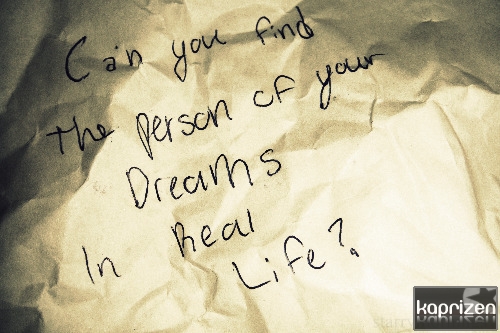 Can you find
the person of your
Dreams
In Real
Life?
kaprizen